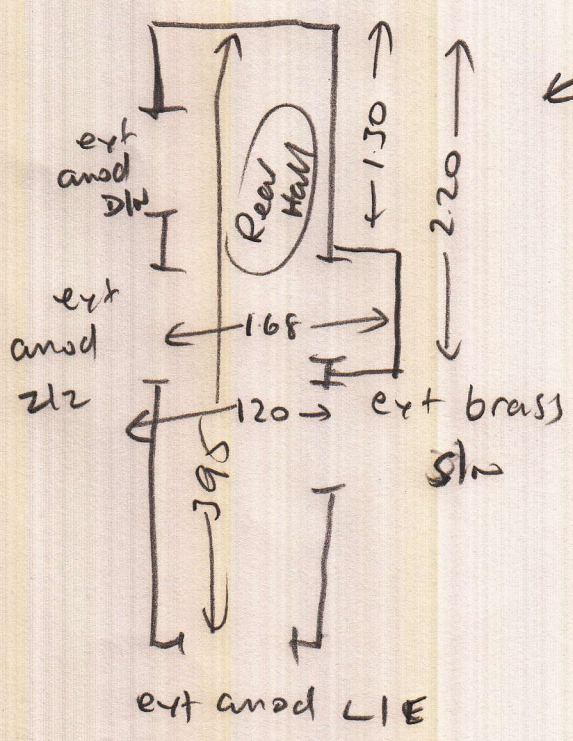 ext
anod
D/N
Rear
Hall
1.30
2.20
ext
anod
Z/Z
1.68
120
3.95
ext brass
S/N
ext anod L/E